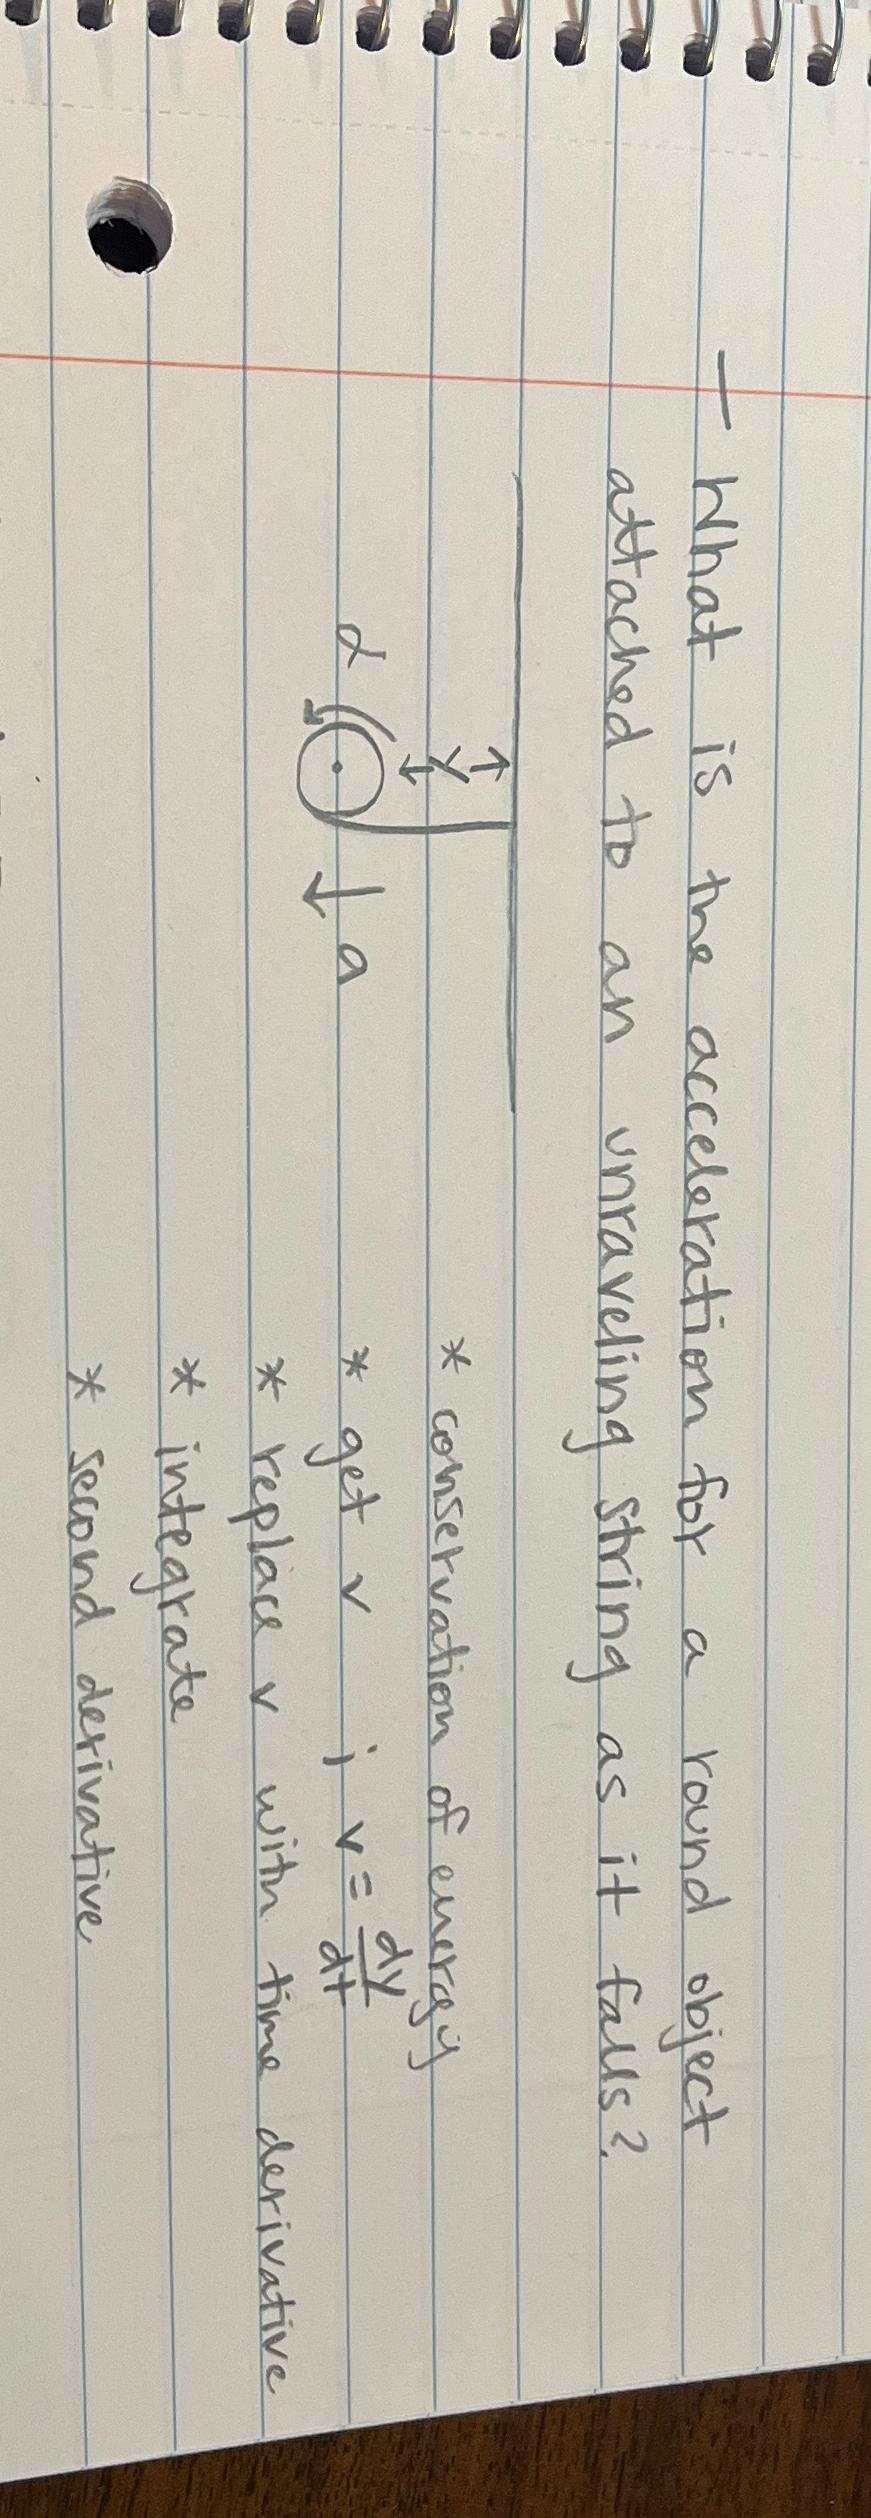 — What is the acceleration for a round object
attached to an unraveling string as it falls?
y
α
a
* conservation of energy
* get v ; v = dy/dt
* replace v with time derivative
* integrate
* second derivative